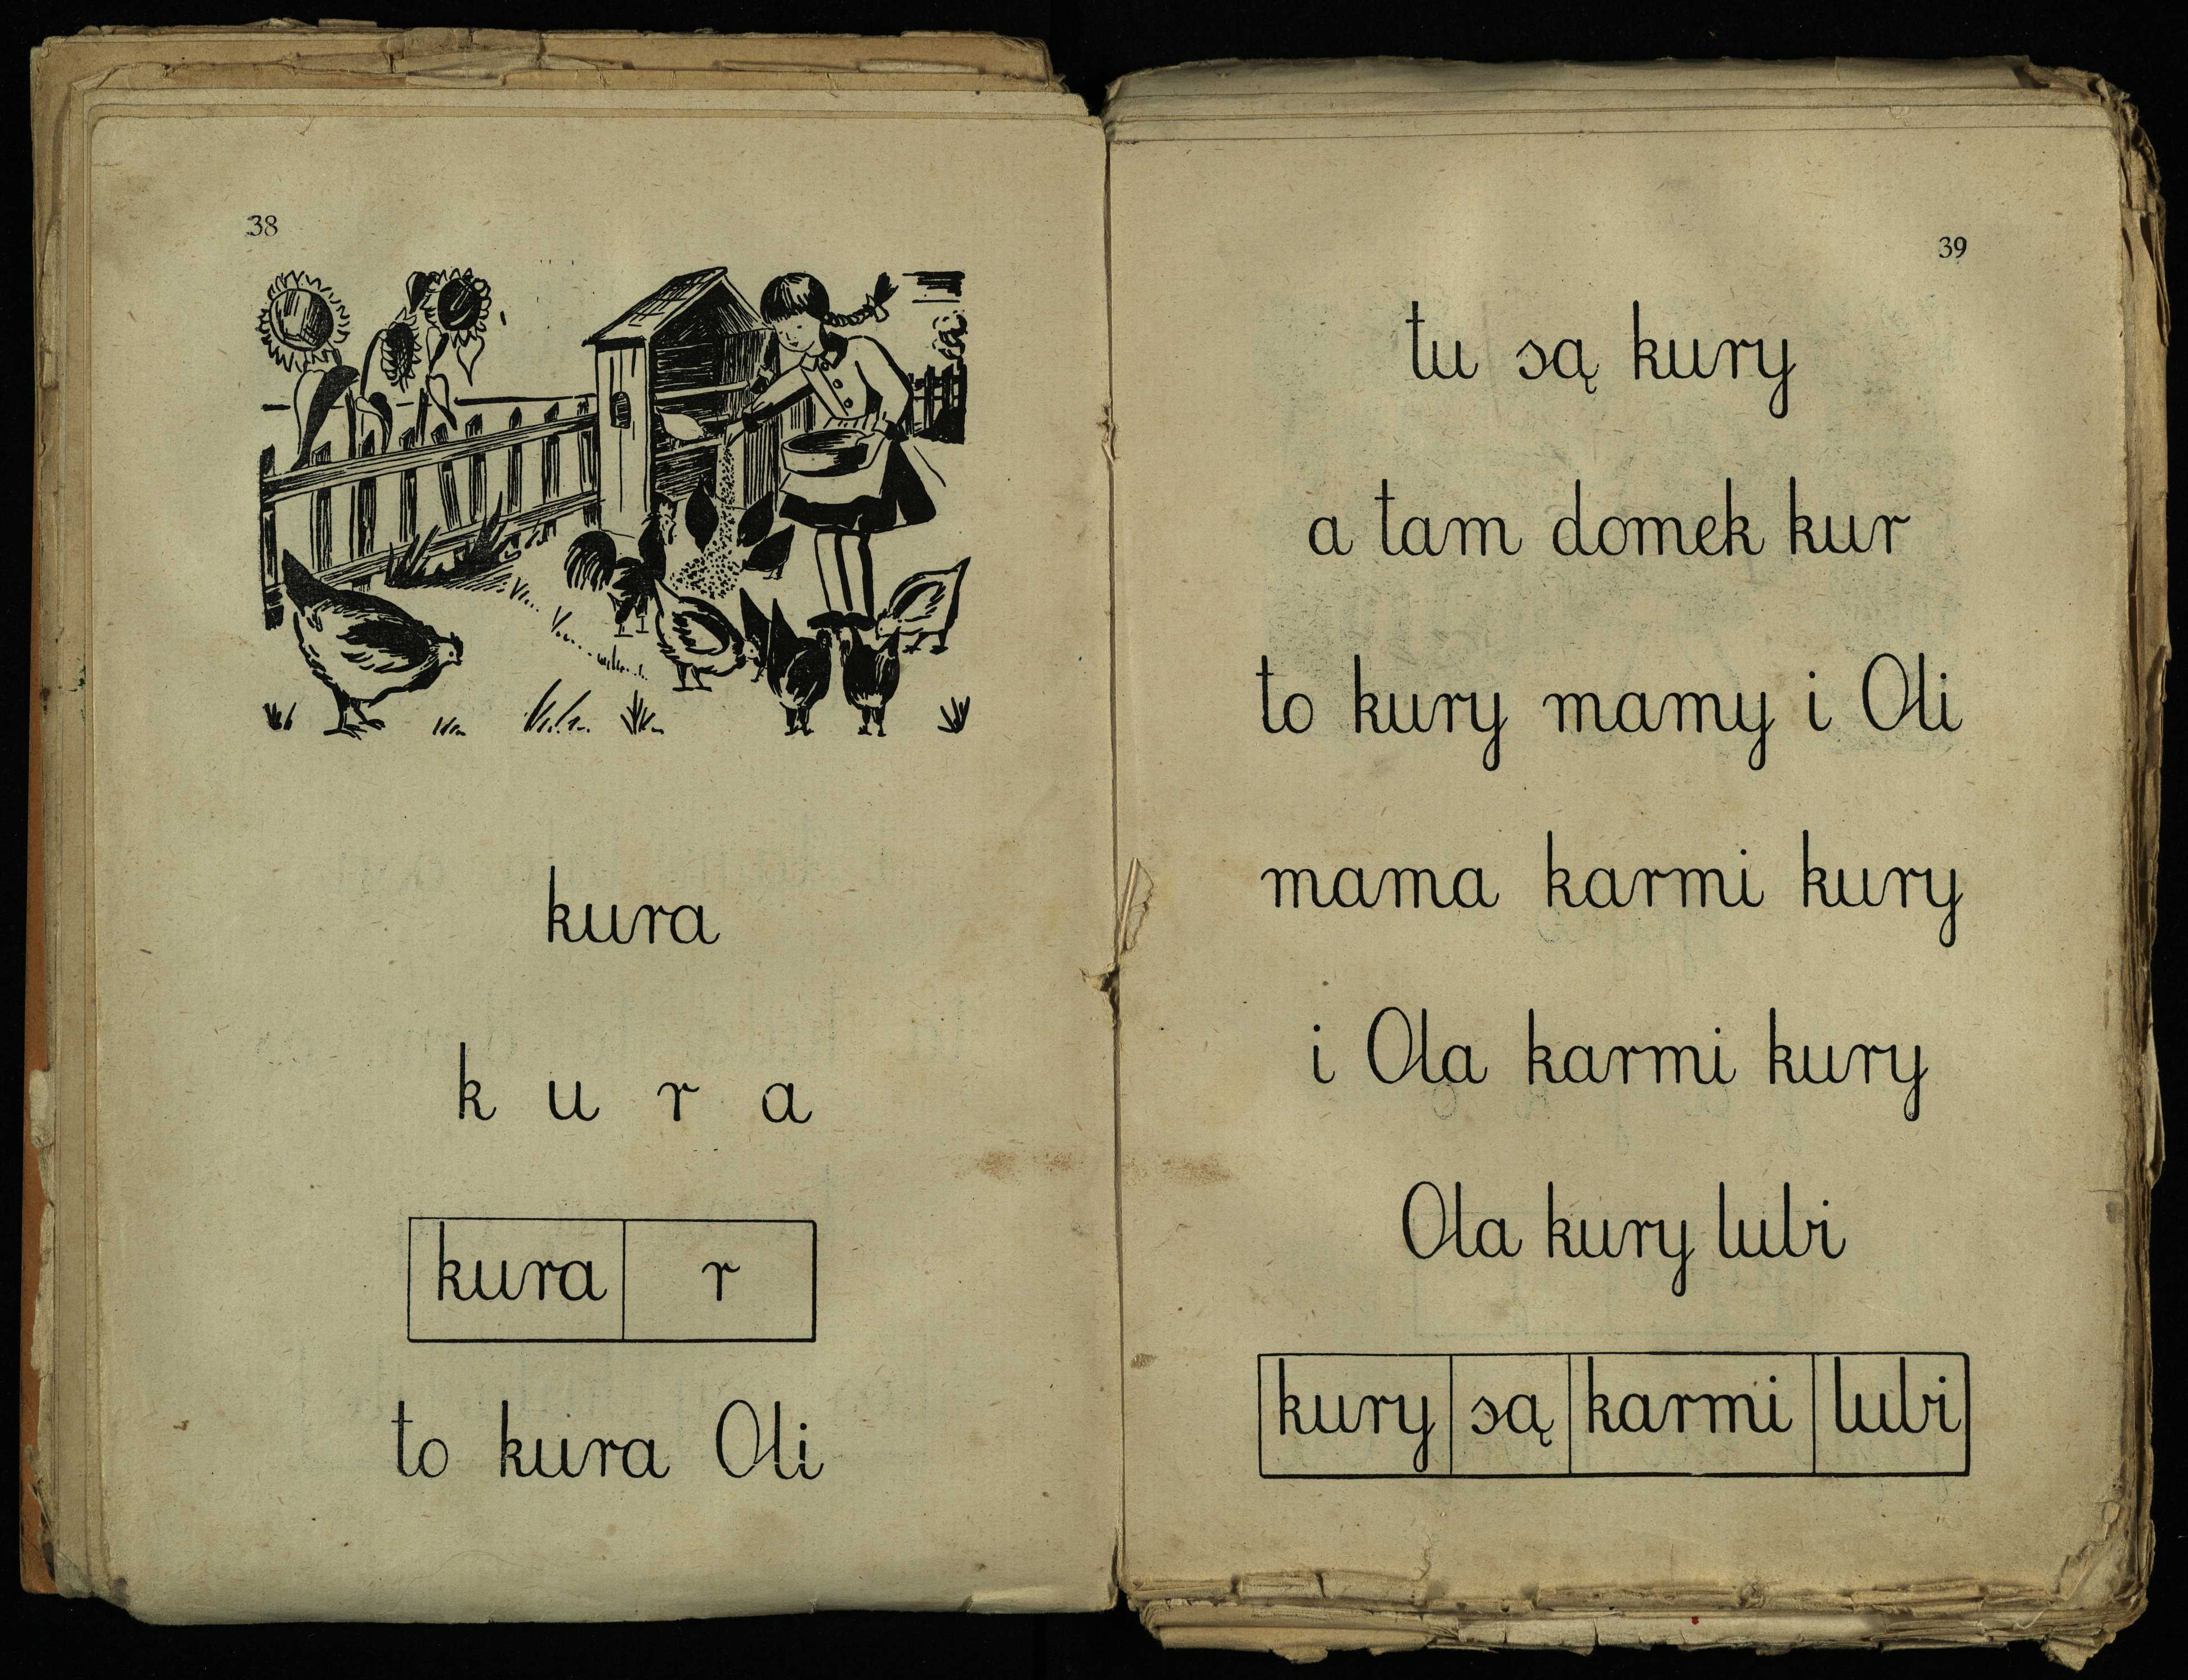 38
kura
k u r a
kura r
to kura Oli
39
tu są kury
a tam domek kur
to kury mamy i Oli
mama karmi kury
i Ola karmi kury
Ola kury lubi
kury są karmi lubi